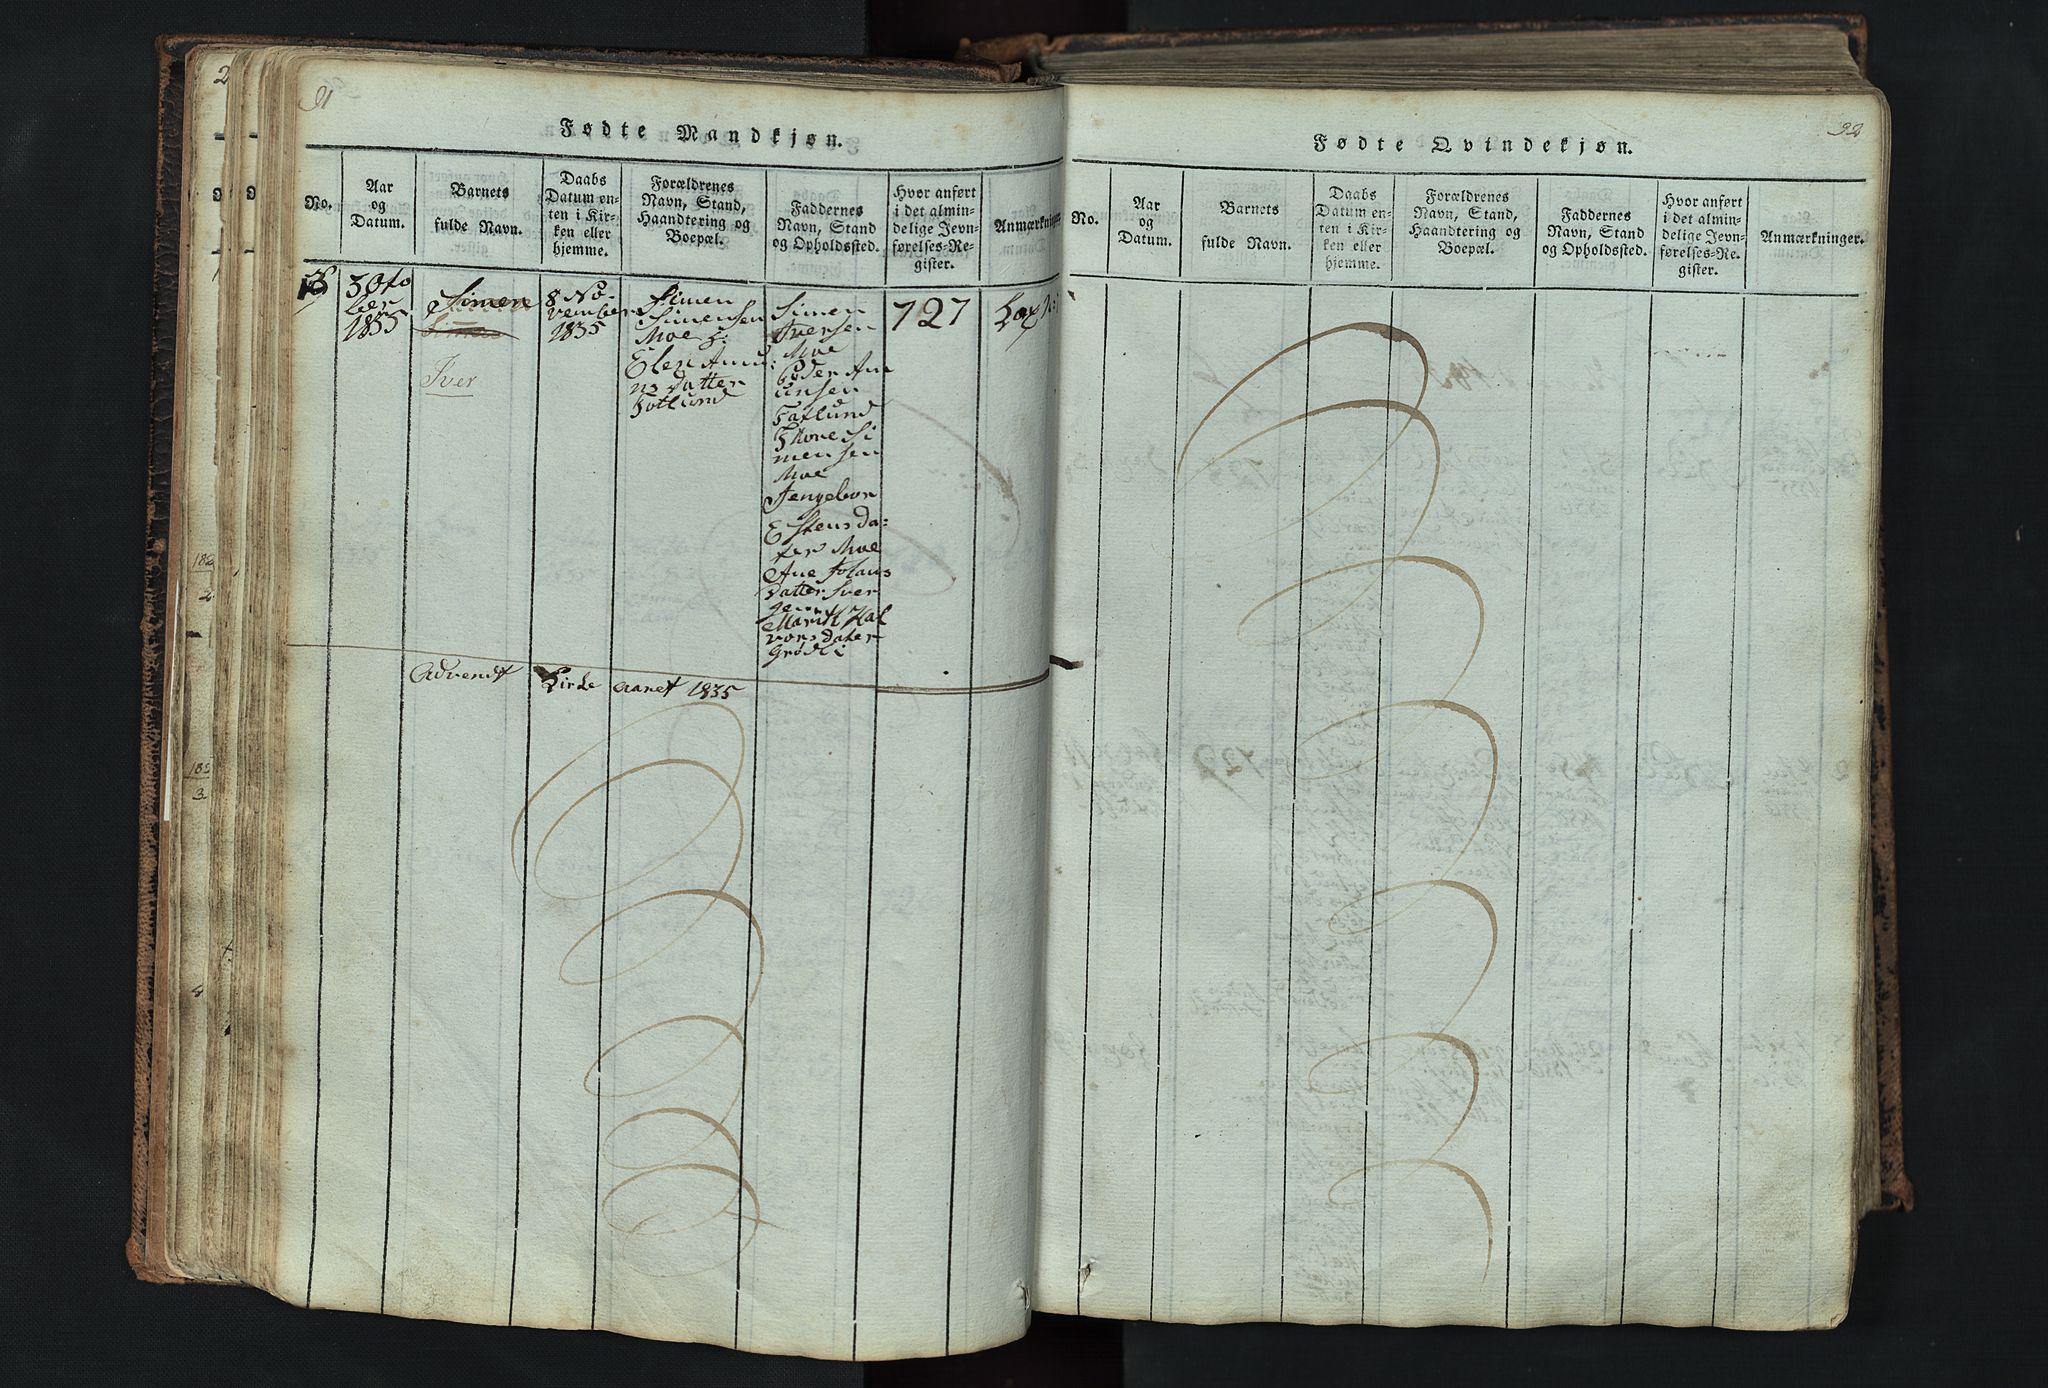 91
Fødte Mandkjøn.
No.
Aar
og
Datum.
Barnets
fulde Navn.
Daabs
Datum en-
ten i Kir-
ken eller
hjemme.
Forældrenes
Navn, Stand,
Haandtering og
Boepæl.
Faddernes
Navn, Stand
og Opholdssted.
Hvor anført
i det almin-
delige Jevn-
førelses-Re-
gister.
Anmærkninger
3 Octo
ber
1835
Simen
Simen
Iver
8 No-
vember
1835
Simen
Simensen
Moe
Elen Amu
ns datter
Fotlund
Simen
Iversen
Moe
Peder Am
unsen
Fotlund
Thore Si
mensen
Moe
Jengebor
Estensda-
ter Moe
Ane Johans
datter
Marith Hal
vorsdater
Grødli
727
Advendt Kirke aaret 1835
92
Fødte Qvindekjøn.
No.
Aar
og
Datum.
Barnets
fulde Navn.
Daabs
Datum en-
ten i Kir-
ken eller
hjemme.
Forældrenes
Navn, Stand,
Haandtering og
Boepæl.
Faddernes
Navn, Stand
og Opholdssted.
Hvor anført
i det almin-
delige Jevn-
førelses-Re-
gister.
Anmærkninger.